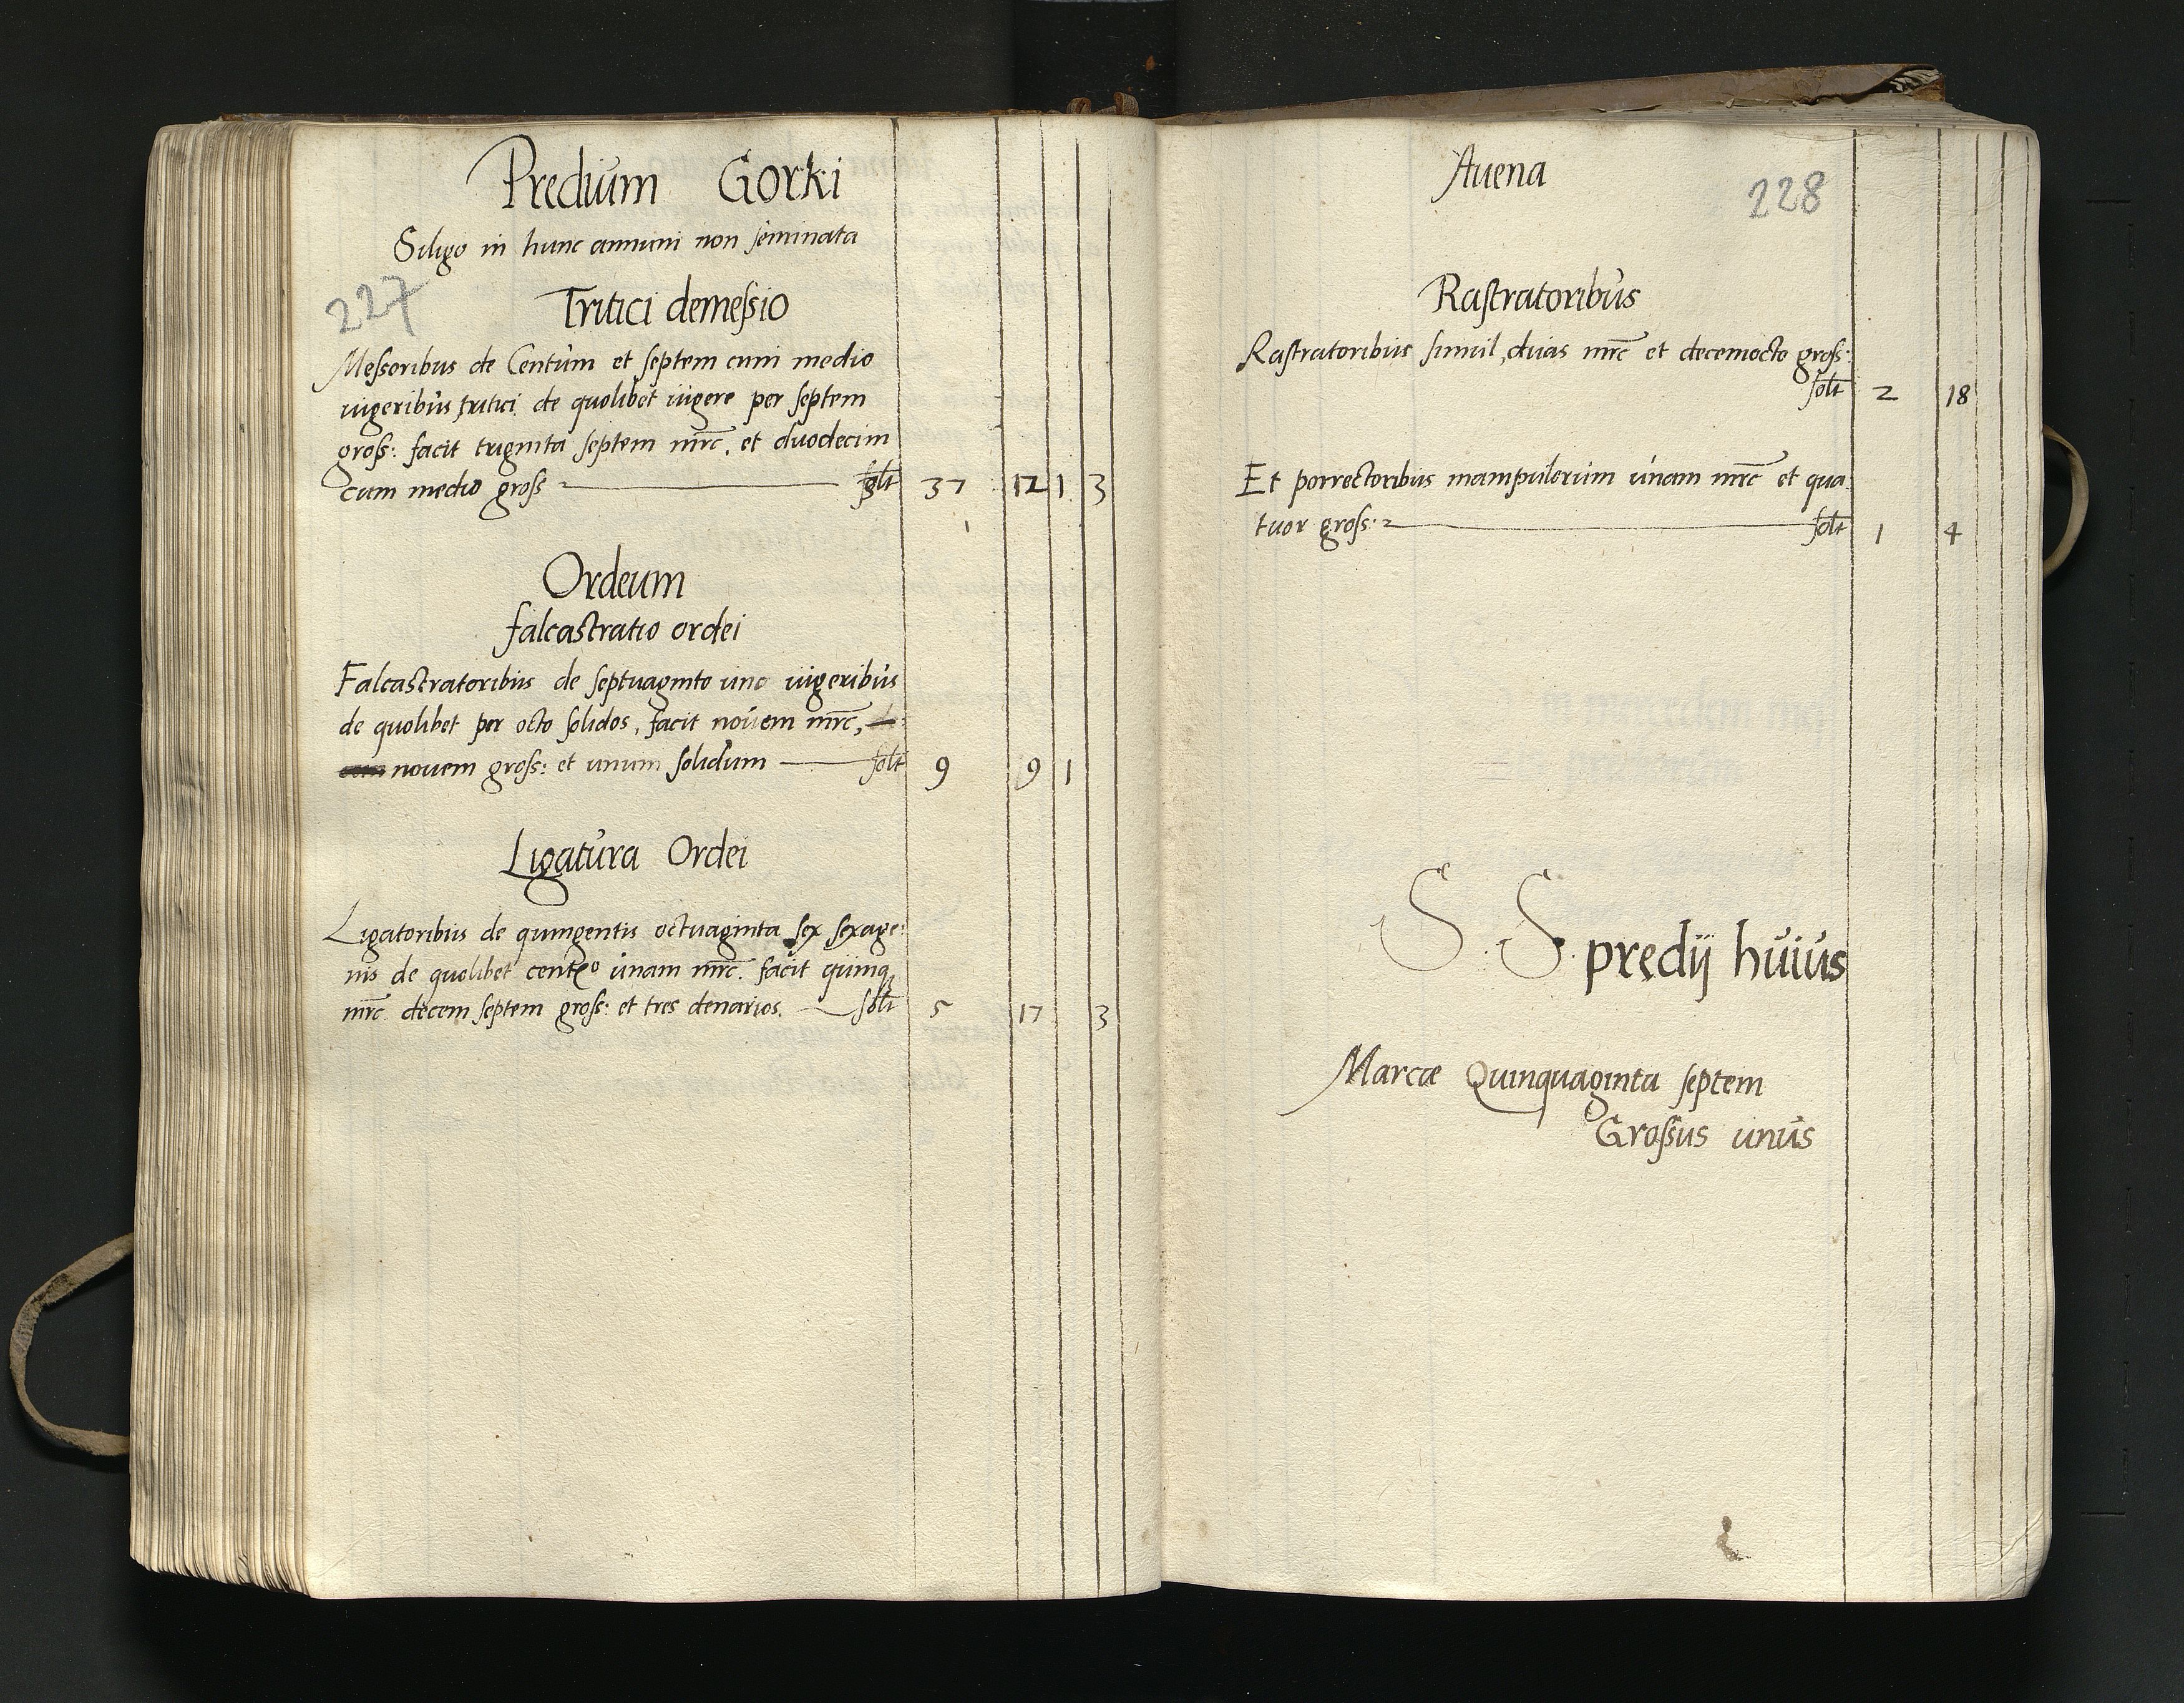 Predium Gorki
Siligo in hunc annum non seminata
227
Tritici demessio
Messoribus de Centum et septem cum medio
iugeribus tritici de quolibet iugere per septem
gross: facit triginta septem mrc. et duodecim
cum medio gross solt 37 12 1 3
1
Ordeum
falcastratio ordei
Falcastratoribus de septuaginto uno iugeribus
de quolibet per octo solidos, facit novem mrc,
novem gross: et unum solidum solt 9 9 1
Ligatura Ordei
Ligatoribus de quingentis octuaginta sex sexage:
nis de quolibet centeo unam mrc. facit quinq
mrc decem septem gross: et tres denarios. solt 5 17 3
Auena
228
Rastratoribus
Rastratoribus simul, duas mrc et decemocto gross:
solt 2 18
Et porrectoribus manipulorum unam mrc et qua
tuor gross: solt 1 4
S. S. predij huius
Marcæ Quinquaginta septem
Grossus unus